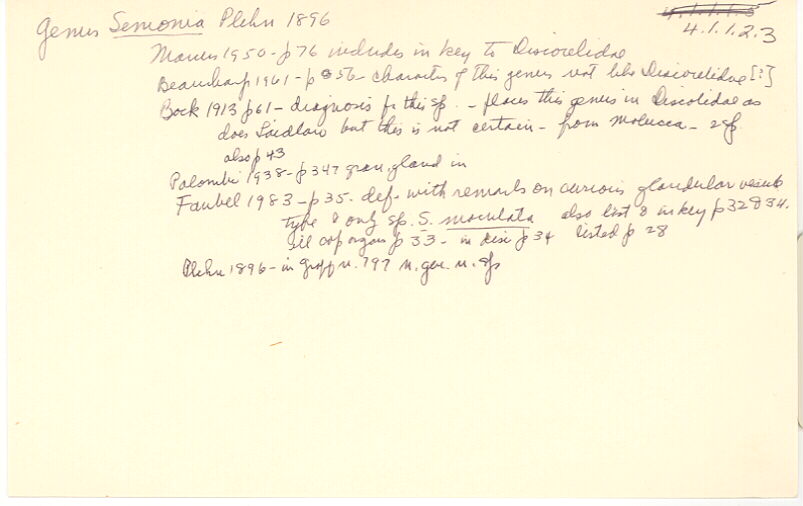 Genus Semonia Plehn 1896
4.1.1.2.3
Marcus 1950 - p 76 includes in key to Discocelidae
Beauchamp 1961 - p 56 - characters of this genus not like Discocelidae [?]
Bock 1913 p 61 - diagnosis for this sp. - places this genus in Discocelidae as
does Laidlaw but this is not certain - from Molucca - 2 sp.
also p 43
Palombi 1938 - p 347 gran. gland in
Faubel 1983 - p 35. def. with remarks on curious glandular vesicle
type & only sp. S. maculata also list & in key p 32 & 34.
ill cop organs p 33 - in disc p 34 listed p 28
Plehn 1896 - in Graff n. 797 n. gen. n. sp